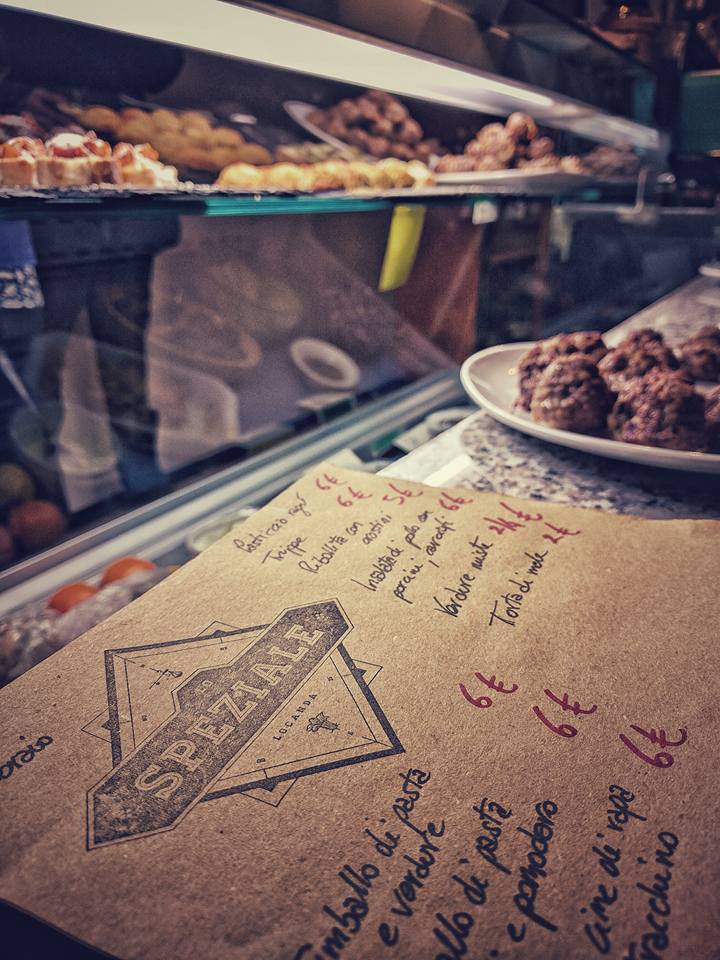 Pasticcio ragù 6€
Trippe 6€
Ribollita con 5€
crostini
Insalata di pollo con 6€
porcini, carciofi
Verdure miste 2/4€
Torta di mele 2€
SPEZIALE
LOCANDA
6€
6€
6€
imballo di pasta
e verdure
allo di pasta
i e pomodoro
cine di rapa
racchino